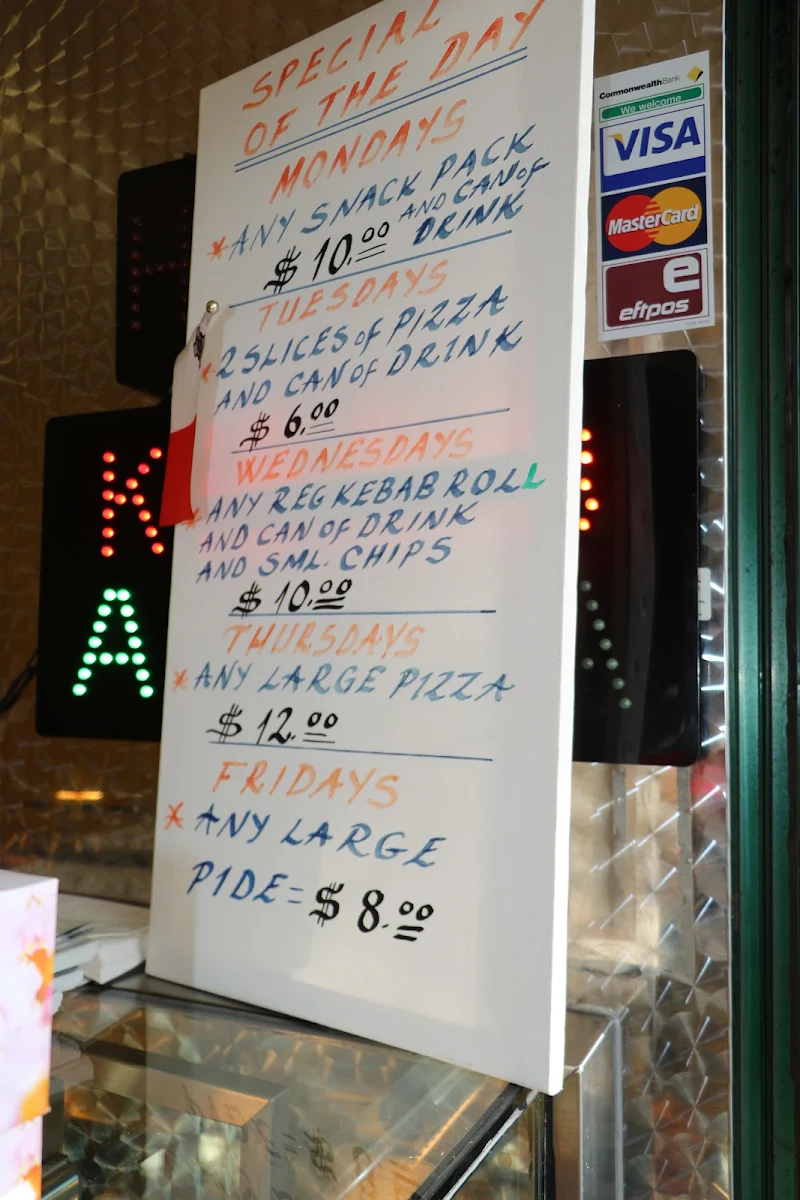 SPECIAL
OF THE DAY
MONDAYS
*ANY SNACK PACK
AND CAN OF
$10.00 DRINK
TUESDAYS
*2 SLICES OF PIZZA
AND CAN OF DRINK
$6.00
WEDNESDAYS
*ANY REG KEBAB ROLL
AND CAN OF DRINK
AND SML. CHIPS
$10.00
THURSDAYS
*ANY LARGE PIZZA
$12.00
FRIDAYS
*ANY LARGE
PIDE=$8.00
CommonwealthBank
We welcome
VISA
MasterCard
e
eftpos
K
A